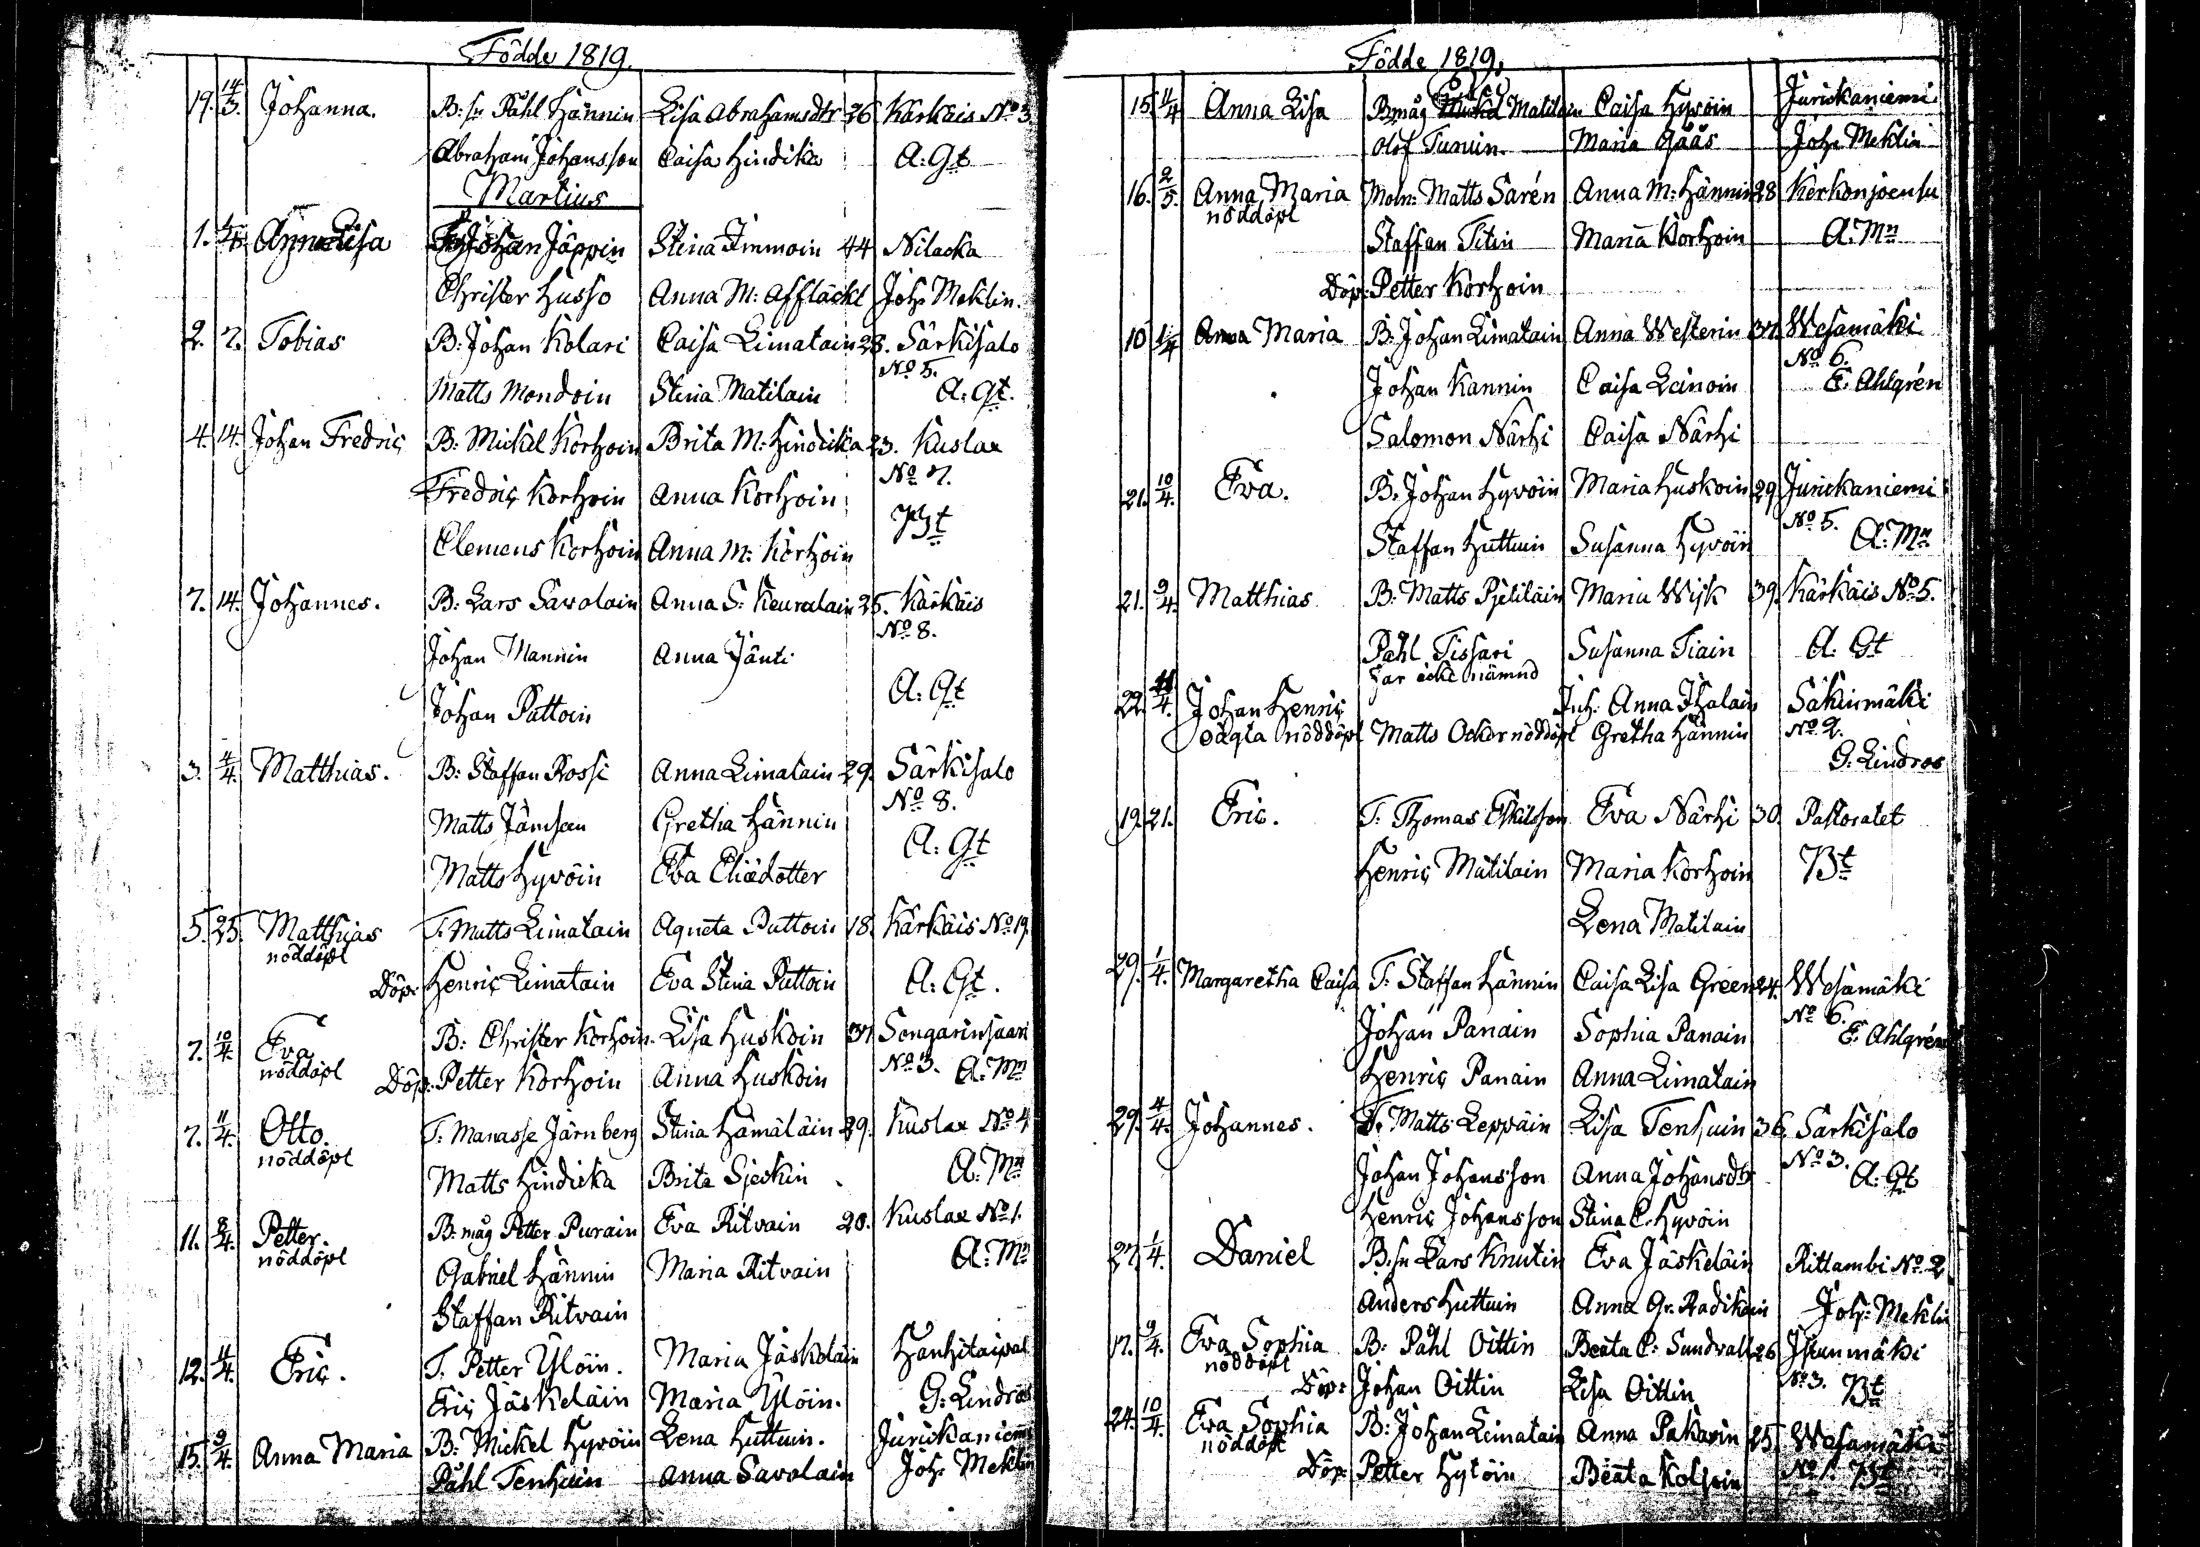 Födde 1819.
19. 14/3. Johanna. B: sn Påhl Hännin Lisa Abrahamsdtr 26 Kärkäis No 3
Abraham Johansson Caisa Hindika A: Gt
Martius
1. Anna Lisa Johan Jäppin Stina Immoin 44 Nilacka
Christer Husso Anna M: Affläckt Joh: Meklin.
2. 7. Tobias B: Johan Kolari Caisa Limatain 28. Särkisalo
No 5.
Matts Mondoin Stina Matilain A: Gt.
4. 14. Johan Fredric B: Mickel Korhoin Brita M: Hindika 23. Kuslax
No 7.
Fredric Korhoin Anna Korhoin
Bt
Clemens Korhoin Anna M: Korhoin
7. 14. Johannes. B: Lars Savolain Anna S: Keuralain 25. Kärkäis
No 8.
Johan Mannin Anna Jänti
A: Gt
Johan Puttoin
3. 4/4. Matthias. B: Staffan Rossi Anna Limatain 29. Särkisalo
No 8.
Matts Jämsen Gretha Hännin
A: Gt
Matts Hyvöin Eva Eliædotter
5. 25. Matthias T. Matts Limatain Agneta Puttoin 18. Kärkäis No 19.
nöddöpt
Döp: Henric Limatain Eva Stina Puttoin A: Gt.
7. 10/4. Eva B: Christer Korhoin. Lisa Huskoin 37. Songarinsaari
nöddöpt No 3.
Döp: Petter Korhoin Anna Huskoin A: Mn
7. 11/4. Otto. T. Manasse Järnberg Stina Hämäläin 29. Kuslax No 4
nöddöpt
Matts Hindika Brita Sjeckin A: Mn
11. 8/4. Petter. B: måg Petter Purain Eva Ritvain 20. Kuslax No 1.
nöddöpt
Gabriel Hännin Maria Ritvain A: Mn
Staffan Ritvain
12. 11/4. Eric. T. Petter Ylöin. Maria Jäskeläin Hanhitaipal
Eric Jäskeläin Maria Ylöin. G: Lindros
15. 9/4. Anna Maria B: Mickel Hyvöin Lena Huttuin. Jurickaniemi
Påhl Tenhuin Anna Savolain Joh: Meklin
Födde 1819.
15. 11/4 Anna Lisa B: måg Matilain Caisa Hyvöin Jurickaniemi
Olof Turuin Maria Gåås Joh: Meklin
16. 2/5. Anna Maria Moln: Matts Sarén Anna M: Hännin 28 Kerkonjoensu
nöddöpt
Staffan Titin Maria Korhoin A: Mn
Döp: Petter Korhoin
10 Anna Maria B: Johan Limatain Anna Westerin 37. Wesamäki
No 6.
Johan Kannin Caisa Leinoin E. Ahlgrén
Salomon Närhi Caisa Närhi
21. 10/4. Eva. B. Johan Hyvöin Maria Huskoin 29. Jurickaniemi
No 5.
Staffan Huttuin Susanna Hyvöin A: Mn
21. 9/4. Matthias B: Matts Pjeliläin Maria Wijk 39. Kärkäis No 5.
Påhl Tissari Susanna Tiain A: Gt
Far icke nämnd
22. Johan Henric Inh: Anna Ihalain Säkinmäki
oägta nöddöpt Matts Ocker nöddöpt Gretha Hännin No 2.
G: Lindros
19. 21. Eric. T. Thomas Eskilsson Eva Närhi 30. Pastoratet
Henric Matilain Maria Korhoin Bt
Lena Matilain
29. 1/4. Margaretha Caisa T. Staffan Hännin Caisa Lisa Green 24. Wesamäki
No 6.
Johan Panain Sophia Panain E: Ahlgrén
Henric Panain Anna Limatain
29. 4/4. Johannes. T. Matts Leppäin Lisa Tenhuin 36. Särkisalo
No 3.
Johan Johansson Anna Johansdtr A: Gt
Henric Johansson Stina C. Hyvöin
27. 1/4. Daniel B. sn Lars Knutin Eva Jäskeläin Rittambi No 2
Anders Huttuin Anna Gr. Radikain Joh: Meklin
17. 9/4. Eva Sophia B: Påhl Oittin Beata C: Sundvall 26 Isunmäki
nöddöpt No 3.
Döp: Johan Oittin Lisa Oittin Bt
24. 10/4. Eva Sophia B: Johan Leinatain Anna Pakarin 25. Wesamäki
nöddöpt
Döp: Petter Hytöin Beata Kolhoin No 1. Bt